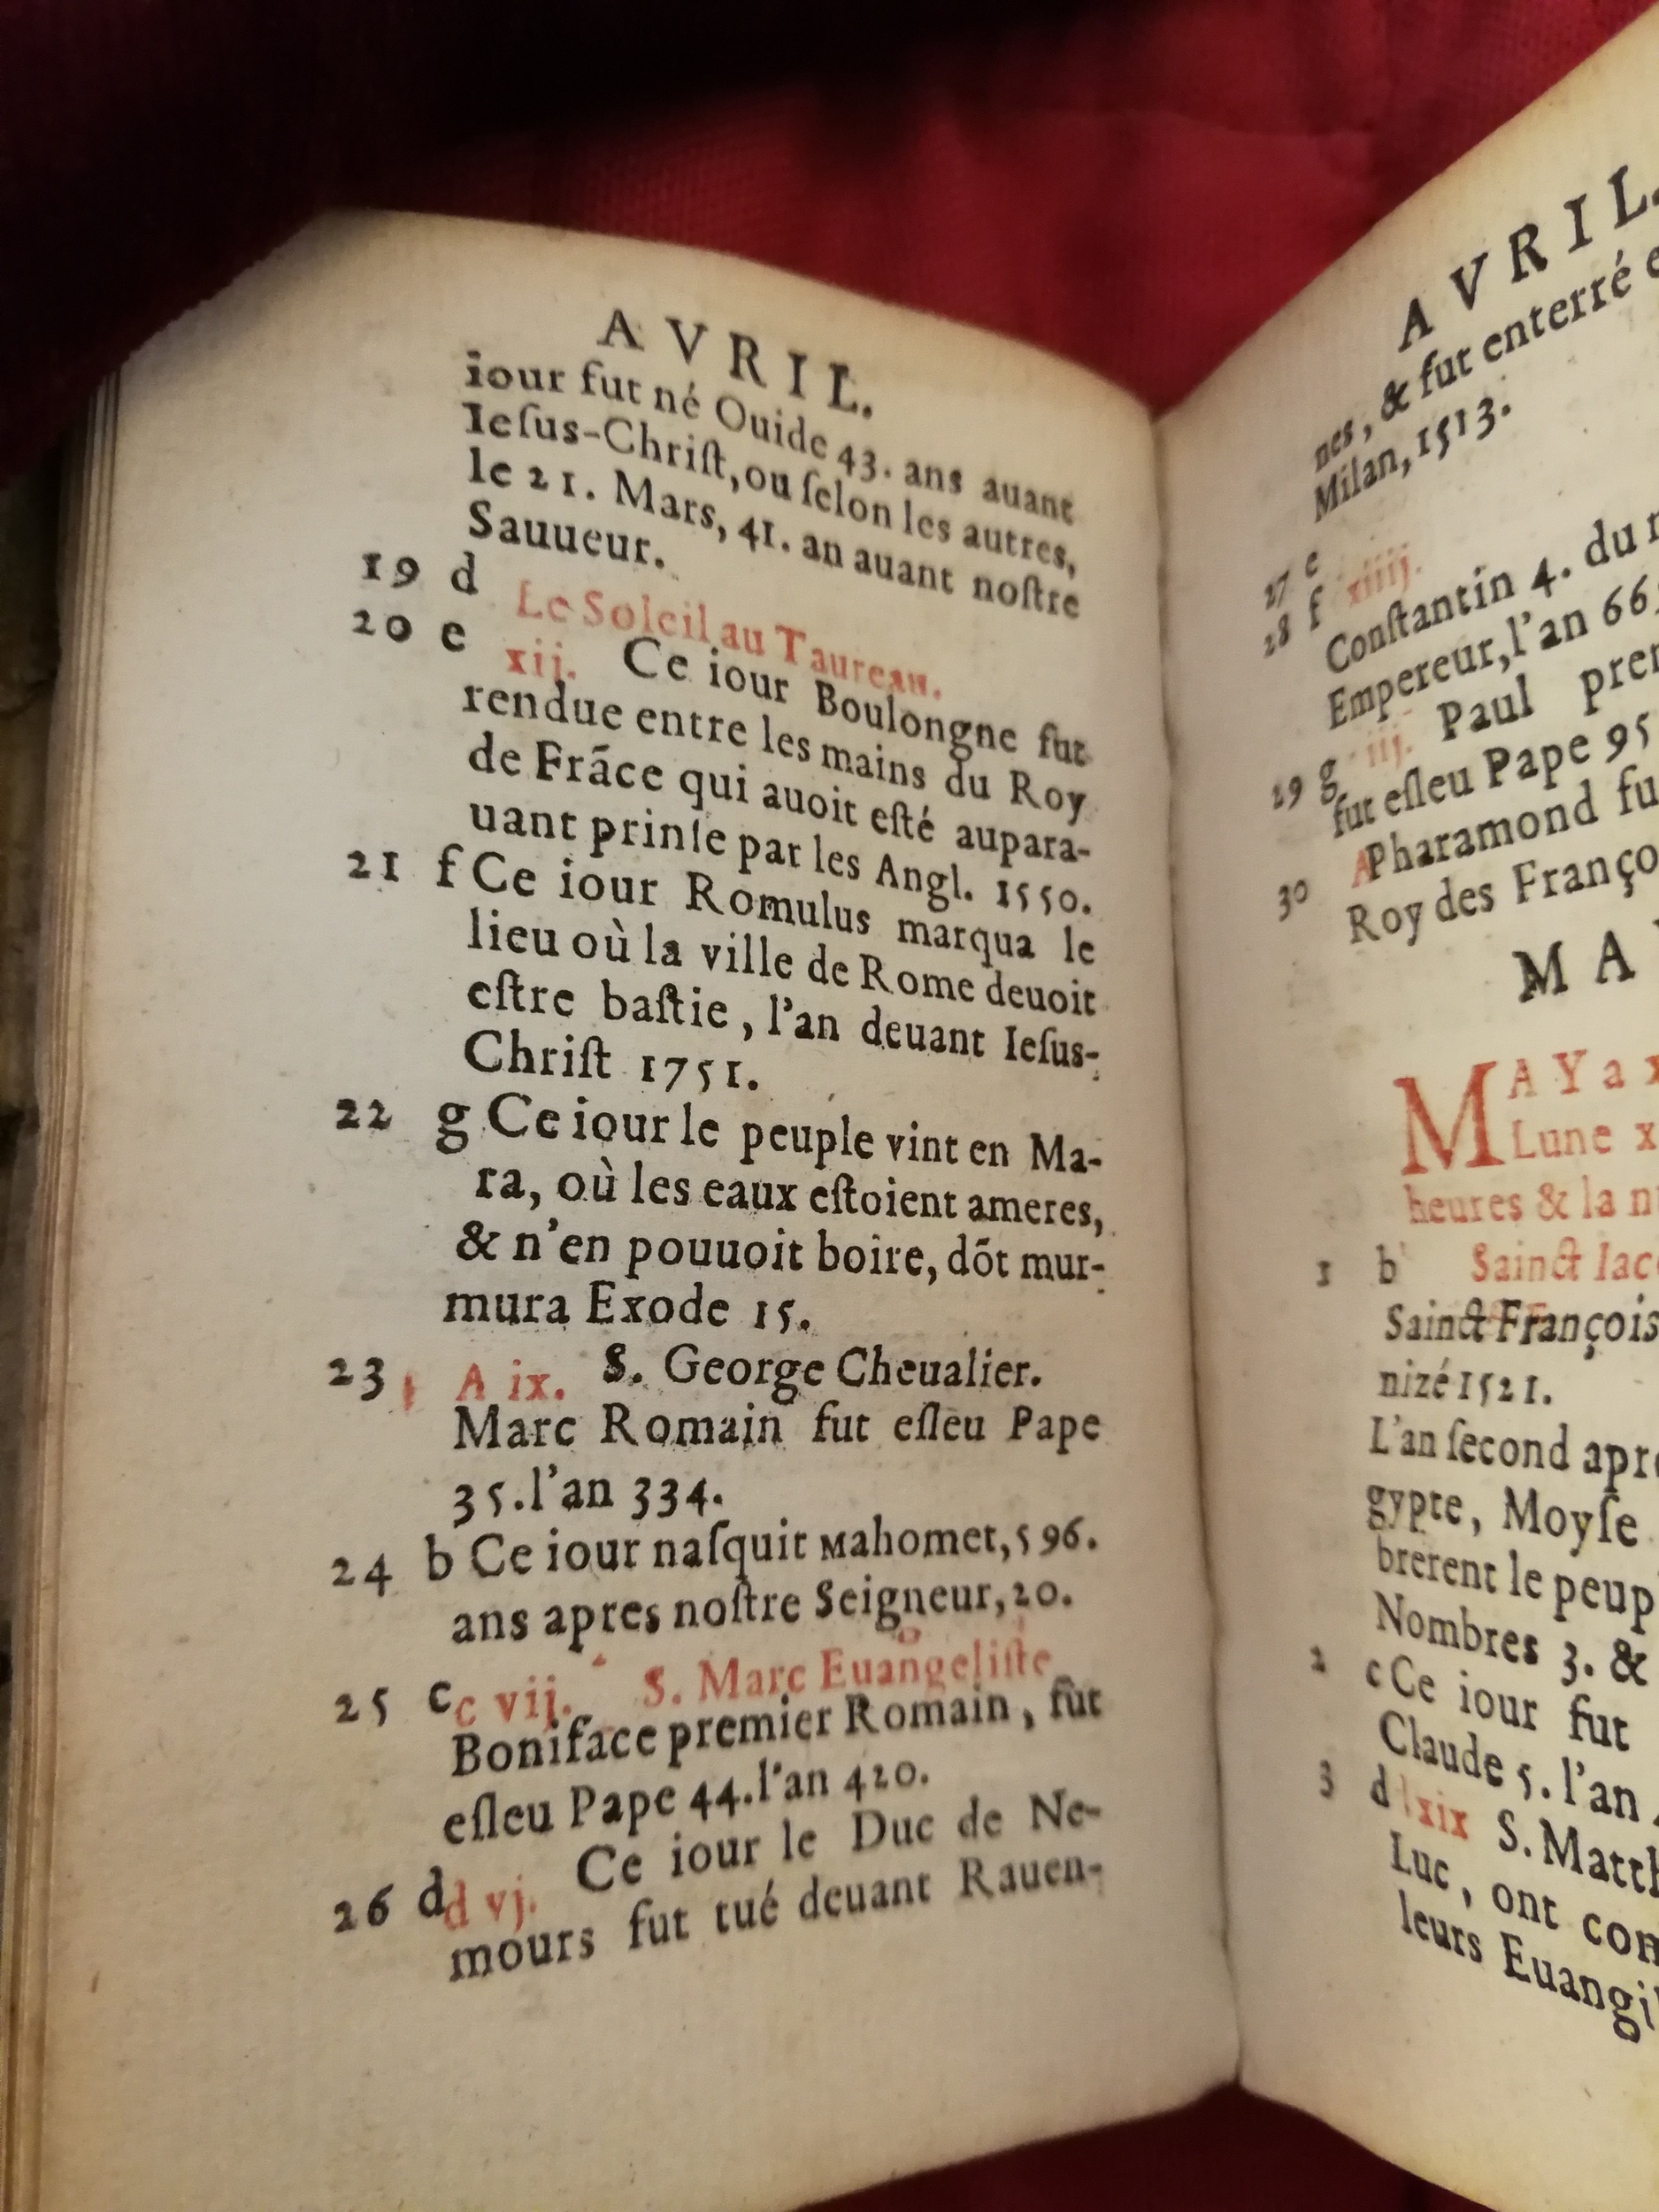 AVRIL.
iour fut né Ouide 43. ans auant
Ieſus-Chriſt, ou ſelon les autres,
le 21. Mars, 41. an auant noſtre
Sauueur.
19 d Le Soleil au Taureau.
20 e xij. Ce iour Boulongne fut
rendue entre les mains du Roy
de Frāce qui auoit eſté aupara-
uant prinſe par les Angl. 1550.
21 f Ce iour Romulus marqua le
lieu où la ville de Rome deuoit
eſtre baſtie, l'an deuant Ieſus-
Chriſt 1751.
22 g Ce iour le peuple vint en Ma-
ra, où les eaux eſtoient ameres,
& n'en pouuoit boire, dōt mur-
mura Exode 15.
23 A ix. S. George Cheualier.
Marc Romain fut eſleu Pape
35. l'an 334.
24 b Ce iour naſquit Mahomet, 596.
ans apres noſtre Seigneur, 20.
25 c c vij. S. Marc Euangeliſte
Boniface premier Romain, fut
eſleu Pape 44. l'an 420.
26 d d vj. Ce iour le Duc de Ne-
mours fut tué deuant Rauen-
AVRIL.
nes, & fut enterré
Milan, 1513.
27 e
28 f xiiij.
Conſtantin 4. du
Empereur, l'an 66
29 g iij. Paul
fut eſleu Pape 95
30 A Pharamond
Roy des Franço
MA
MAY a
Lune
heures & la
1 b Sainct Iac
Sainct François
nizé 1521.
L'an ſecond apr
gypte, Moyſe
brerent le peup
Nombres 3. &
2 c Ce iour fut
Claude 5. l'an
3 d xix S. Matth
Luc, ont
leurs Euangi